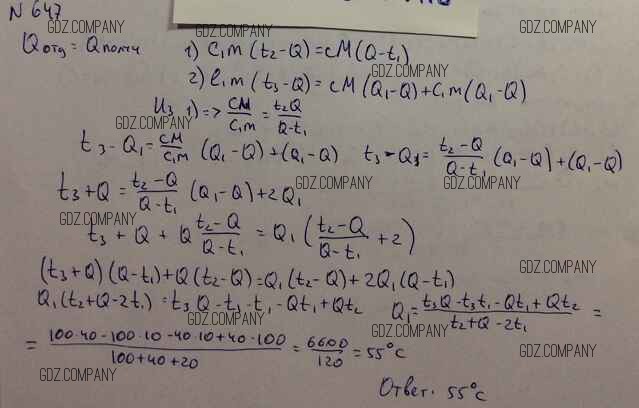 N 647
GDZ.COMPANY GDZ.COMPANY GDZ.COMPANY
Qотд = Qполуч 1) C₁m (t₂-Q) = cM(Q-t₁)
GDZ.COMPANY
2) C₁m (t₃-Q) = cM (Q₁-Q) + C₁m (Q₁-Q)
Из 1) => CM/C₁m = t₂Q/Q-t₁
GDZ.COMPANY
t₃-Q₁ = CM/C₁m (Q₁-Q) + (Q₁-Q) t₃-Q₁ = t₂-Q/Q-t₁ (Q₁-Q) + (Q₁-Q)
t₃+Q = t₂-Q/Q-t₁ (Q₁-Q) + 2Q₁
GDZ.COMPANY GDZ.COMPANY GDZ.COMPANY
t₃ + Q + Q t₂-Q/Q-t₁ = Q₁ (t₂-Q/Q-t₁ + 2)
(t₃+Q)(Q-t₁)+Q(t₂-Q)=Q₁(t₂-Q)+2Q₁(Q-t₁)
GDZ.COMPANY
Q₁(t₂+Q-2t₁) = t₃Q-t₃-t₁-Qt₁+Qt₂ Q₁ = t₃Q-t₃t₁-Qt₁+Qt₂/t₂+Q-2t₁ =
GDZ.COMPANY GDZ.COMPANY
= 100·40-100·10-40·10+40·100/100+40+20 = 6600/120 = 55°C
GDZ.COMPANY GDZ.COMPANY
Ответ. 55°C